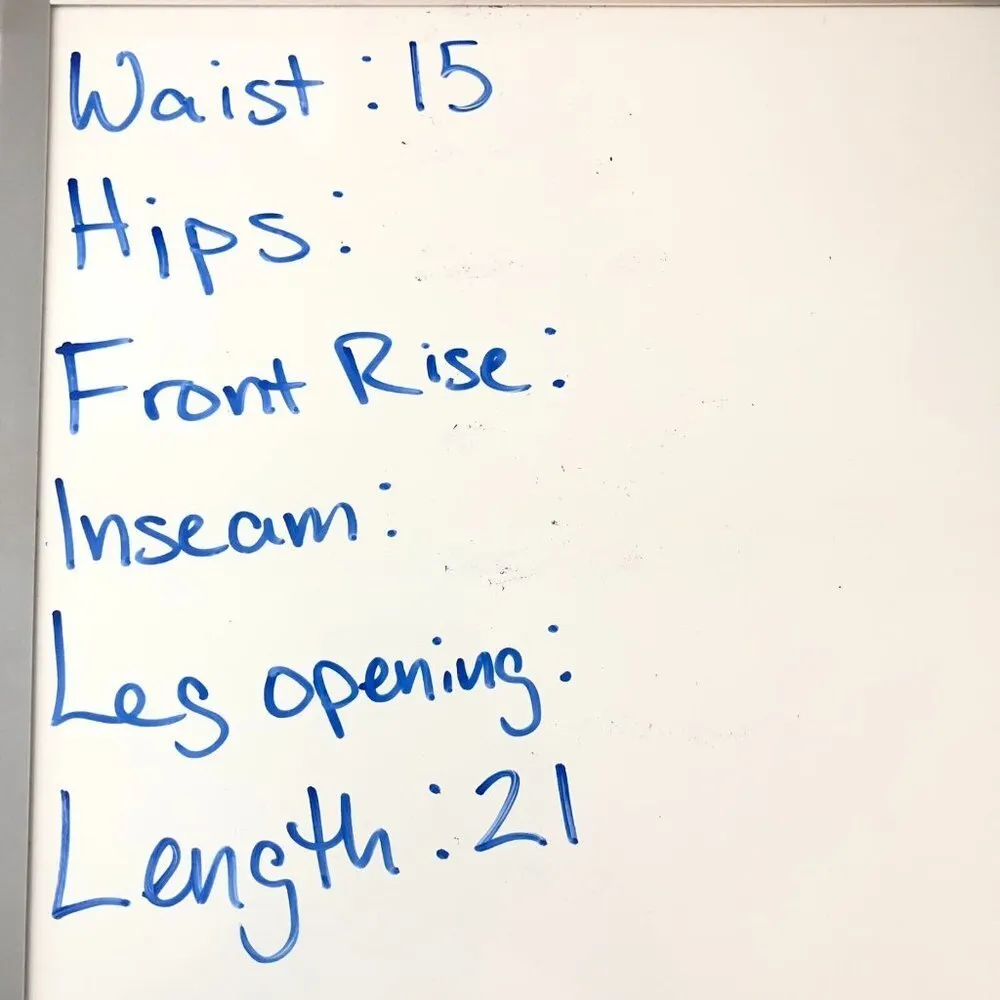 Waist : 15
Hips :
Front Rise :
Inseam :
Leg opening :
Length : 21